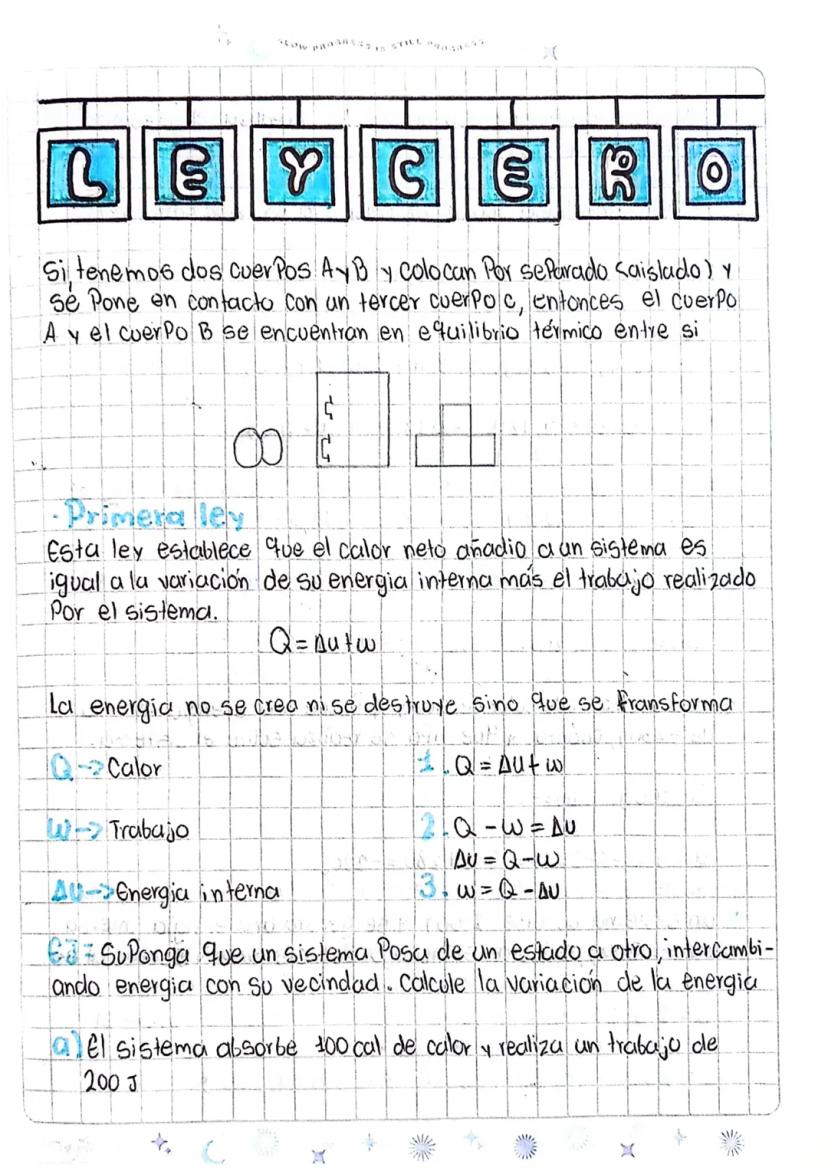 SLOW PROGRESS IS STILL PROGRESS
LEY CERO
Si tenemos dos cuerpos A y B y colocan por separado (aislado) y
se pone en contacto con un tercer cuerpo C, entonces el cuerpo
A y el cuerpo B se encuentran en equilibrio térmico entre si
· Primera ley
Esta ley establece que el calor neto añadio a un sistema es
igual a la variación de su energia interna más el trabajo realizado
por el sistema.
Q = Δu + w
La energia no se crea ni se destruye sino que se transforma
Q -> Calor
1. Q = ΔU + w
W -> Trabajo
2. Q - W = ΔU
ΔU = Q - W
ΔU -> Energia interna
3. W = Q - ΔU
EJ = Suponga que un sistema posa de un estado a otro, intercambi-
ando energia con su vecindad. Calcule la variación de la energia
a) El sistema absorbe 100 cal de calor y realiza un trabajo de
200 J